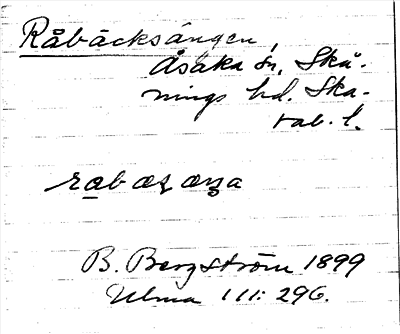 Råbäcksängen,
Åsaka sn, Skå-
nings hd. Ska-
rab. l.
B. Bergström 1899
Ulma 111: 296.